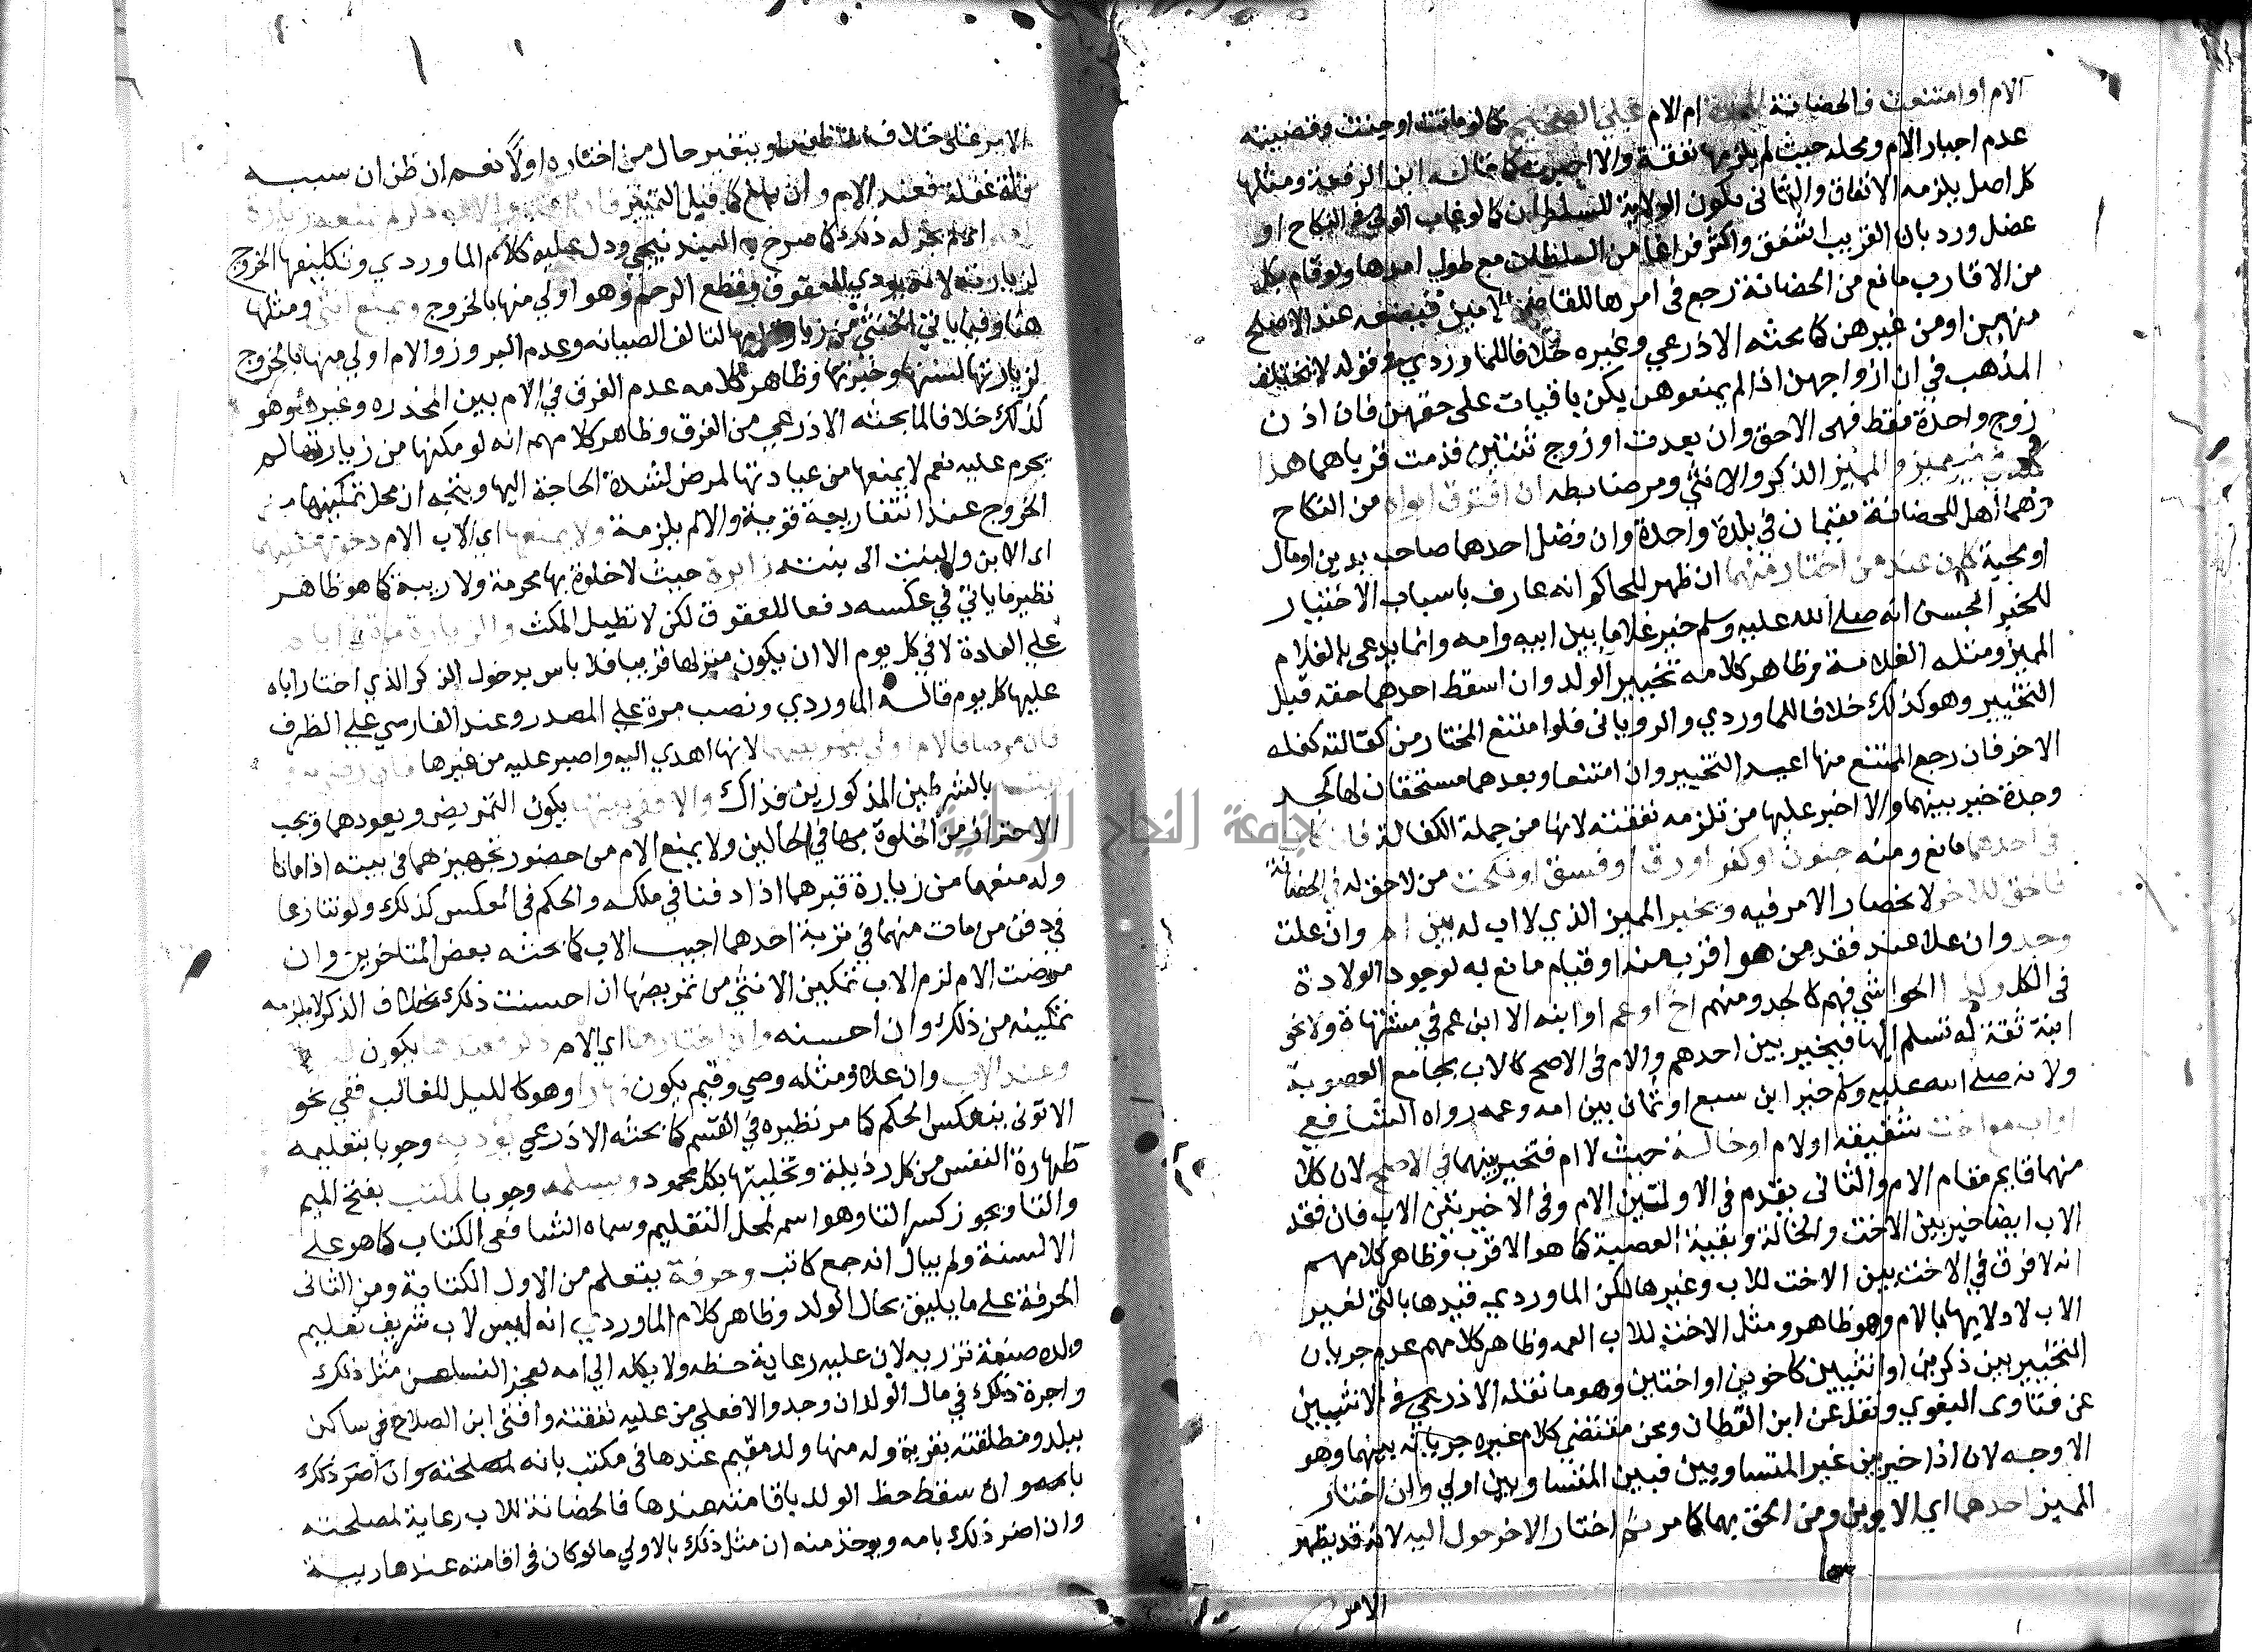 الام او امتنعت فالحضانة ام الام على الصحيح كما لو ماتت او جنت وقضيته
عدم اجبار الام ومحله حيث لم يلزمها نفقة والا اجبرت كما قاله ابن الرفعة ومثلها
كل اصل يلزمه الانفاق والثاني تكون الولاية للسلطان كما لو غاب الولي في النكاح او
عضل ورد بان القريب اشفق واكثر فراغا من السلطان مع طول امدها ولو قام بكل
من الاقارب مانع من الحضانة رجع في امرها للقاضي الامين فيضعه عند الاصلح
منهن او من غيرهن كما بحثه الاذرعي وغيره خلافا للماوردي في قوله لا تختلف
المذهب في ان ازواجهن اذا لم يمنعوهن يكن باقيات على حقهن فان اذن
زوج واحدة فقط فهي الاحق وان بعدت او زوج ثنتين قدمت قرباهما هذا
في غير مميز والمميز الذكر والانثى ومر ضابطه ان افترق ابواه من النكاح
وهما اهل للحضانة مقيمان في بلدة واحدة وان فضل احدهما صاحبه بدين او مال
او محبة كان عند من اختار منهما ان ظهر للحاكم انه عارف باسباب الاختيار
للخبر الحسن انه صلى الله عليه وسلم خير غلاما بين ابيه وامه وانما يدعى بالغلام
المميز ومثله الغلامة وظاهر كلامه تخيير الولد وان اسقط احدهما حقه قبل
التخيير وهو كذلك خلافا للماوردي والروياني فلو امتنع المختار من كفالته كفله
الاخر فان رجع الممتنع منهما اعيد التخيير وان امتنعا وبعدهما مستحقان لها كجد
وجدة خير بينهما والا اجبر عليها من تلزمه نفقته لانها من جملة الكفالة فان كان
في احدهما مانع ومنه جنون او كفر او رق او فسق او نكحت من لا حق له في الحضانة
فالحق للاخر لانحصار الامر فيه ويخير المميز الذي لا اب له بين ام وان علت
وجد وان علا عند فقد من هو اقرب منه او قيام مانع به لوجود الولادة
في الكل وكذا الحواشي فهم كالجد ومنهم اخ او عم او ابنه الا ابن عم في مشتهاة ولا نحو
ابنة ثقة له تسلم اليها فيخير بين احدهم والام في الاصح كالاب بجامع العصوبة
ولانه صلى الله عليه وسلم خير ابن سبع او ثمان بين امه وعمه رواه الشافعي
او اب مع اخت شقيقة او لام او خالة حيث لا ام فتخير بينهما في الاصح لان كلا
منهما قايم مقام الام والثاني يقدم في الاولتين الام وفي الاخيرتين الاب فان فقد
الاب ايضا خير بين الاخت والخالة وبقية العصبة كما هو الاقرب وظاهر كلامهم
انه لا فرق في الاخت بين الاخت للاب وغيرها لكن الماوردي قيدها بالتي لغير
الاب لادلايها بالام وهو ظاهر ومثل الاخت للاب العمة وظاهر كلامهم عدم جريان
التخيير بين ذكرين او انثيين كاخوين او اختين وهو ما نقله الاذرعي في الانثيين
عن فتاوى البغوي ونقل عن ابن القطان وعن مقتضى كلام غيره جريانه بينهما وهو
الاوجه لانه اذا خير بين غير المتساويين فبين المتساويين اولى وان اختار
المميز احدهما اي الابوين ومن الحق بهما كما مر ثم اختار الاخر حول اليه لانه قد يظهر
الامر
الامر على خلاف ما ظنه او يتغير حال من اختاره اولا نعم ان ظن ان سببه
قلة عقله فعند الام وان بلغ كما قبل التمييز فان اختار الاب ذكر لم يمنعه زيارة
امه اي لم يجز له ذلك كما صرح به البندنيجي ودل عليه كلام الماوردي وتكليفها الخروج
لزيارته لانه يودي للعقوق وقطع الرحم وهو اولى منها بالخروج ويمنع انثى ومثلها
هنا وفيما ياتي الخنثى من زيارة امها لتالف الصيانة وعدم البروز والام اولى منها بالخروج
لزيارتها لسنها وخبرتها وظاهر كلامه عدم الفرق في الام بين المخدرة وغيرها وهو
كذلك خلافا لما بحثه الاذرعي من الفرق وظاهر كلامهم انه لو مكنها من زيارتها لم
يحرم عليه نعم لا يمنعها من عيادتها لمرض لشدة الحاجة اليها ويتجه ان محل تمكينها من
الخروج عند انتفا ريبة قوية والا لم يلزمه ولا يمنعها اي الاب الام دخولا عليهما
اي الابن والبنت الى بيته زايرة حيث لا خلوة بها محرمة ولا ريبة كما هو ظاهر
نظير ما ياتي في عكسه دفعا للعقوق لكن لا تطيل المكث والزيارة مرة في ايام
على العادة لا في كل يوم الا ان يكون منزلها قريبا فلا باس بدخول الذكر الذي اختار اباه
عليها كل يوم قاله الماوردي ونصب مرة على المصدر وعند الفارسي على الظرف
فان مرضا فالام اولى بتمريضهما لانها اهدى اليه واصبر عليه من غيرها فان رضي به في
بيته بالشرطين المذكورين فذاك والا ففي بيتها يكون التمريض ويعودهما ويجب
الاحتراز من الخلوة بها في الحالين ولا يمنع الام من حضور تجهيزهما في بيته اذا ماتا
وله منعها من زيارة قبرهما اذا دفنا في ملكه والحكم في العكس كذلك ولو تنازعا
في دفن من مات منهما في تربة احدهما اجيب الاب كما بحثه بعض المتاخرين وان
مرضت الام لزم الاب تمكين الانثى من تمريضها ان احسنت ذلك بخلاف الذكر لا يلزمه
تمكينه من ذلك وان احسنه وان اختارها اي الام ذكر فعندها يكون ليلا
وعند الاب وان علا ومثله وصي وقيم يكون نهارا وهو كالليل للغالب ففي نحو
الاتوني ينعكس الحكم كما مر نظيره في القسم كما بحثه الاذرعي يودبه وجوبا بتعليمه
طهارة النفس من كل رذيلة وتحليتها بكل محمود ويسلمه وجوبا لمكتب بفتح الميم
والتا ويجوز كسر التا وهو اسم لمحل التعليم وسماه الشافعي الكتاب كما هو على
الالسنة ولم يبال انه جمع كاتب وحرفة يتعلم من الاول الكتابة ومن الثاني
الحرفة على ما يليق بحال الولد وظاهر كلام الماوردي انه ليس لاب شريف تعليم
ولده صنعة تزريه لان عليه رعاية حظه ولا يكله الى امه لعجز النسا عن مثل ذلك
واجرة ذلك في مال الولد ان وجد والا فعلى من عليه نفقته وافتى ابن الصلاح في ساكن
ببلد ومطلقته بقرية وله منها ولد مقيم عندها في مكتب بانه لمصلحته وان اضر ذلك
بامه وان سقط حظ الولد باقامته عندها فالحضانة للاب رعاية لمصلحته
وان اضر ذلك بامه ويوخذ منه ان مثل ذلك بالاولى ما لو كان في اقامته عندها ريبة
جامعة النجاح الوطنية